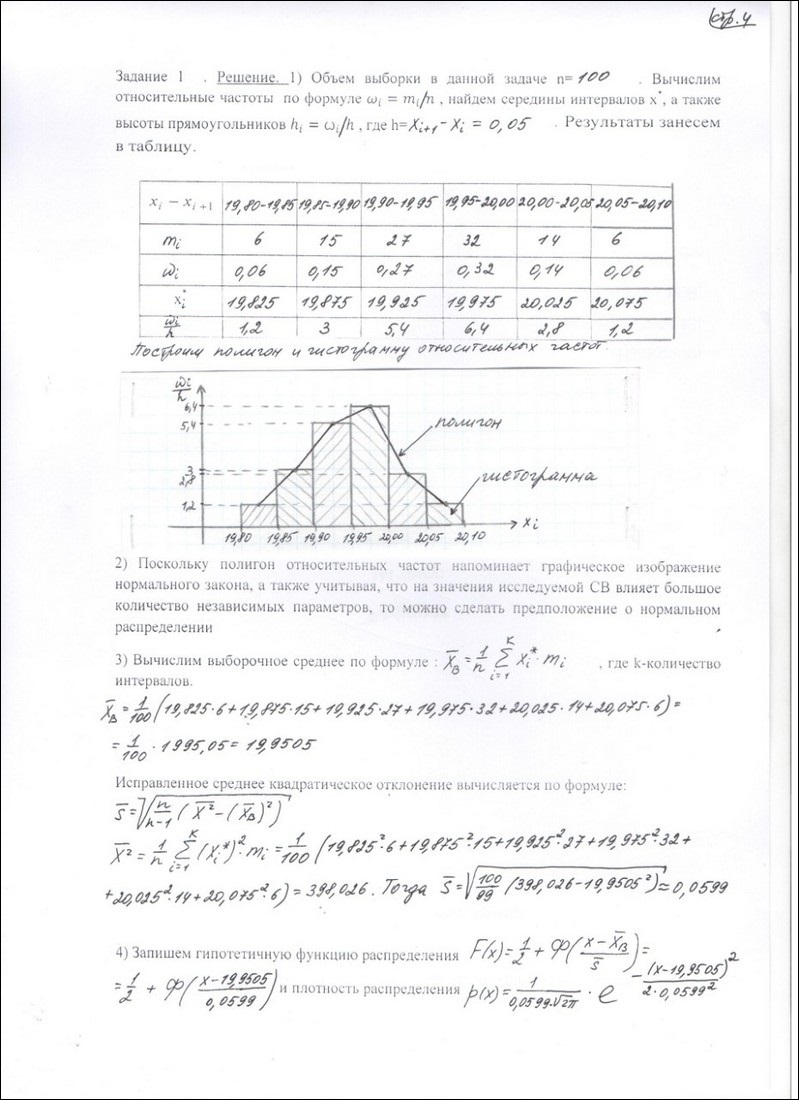 стр. 4
Задание 1 . Решение. 1) Объем выборки в данной задаче n= 100 . Вычислим
относительные частоты по формуле ωi = mi/n , найдем середины интервалов x*, а также
высоты прямоугольников hi = ωi/h , где h= xi+1 - xi = 0,05 . Результаты занесем
в таблицу.
xi − xi+1 19,80-19,85 19,85-19,90 19,90-19,95 19,95-20,00 20,00-20,05 20,05-20,10
mi 6 15 27 32 14 6
ωi 0,06 0,15 0,27 0,32 0,14 0,06
xi* 19,825 19,875 19,925 19,975 20,025 20,075
ωi/h 1,2 3 5,4 6,4 2,8 1,2
Построим полигон и гистограмму относительных частот.
ωi/h
6,4
5,4
полигон
3
2,8
гистограмма
1,2
xi
19,80 19,85 19,90 19,95 20,00 20,05 20,10
2) Поскольку полигон относительных частот напоминает графическое изображение
нормального закона, а также учитывая, что на значения исследуемой СВ влияет большое
количество независимых параметров, то можно сделать предположение о нормальном
распределении
3) Вычислим выборочное среднее по формуле : X̅в = 1/n ∑_{i=1}^{K} xi* · mi , где k-количество
интервалов.
X̅в = 1/100 (19,825·6+19,875·15+19,925·27+19,975·32+20,025·14+20,075·6) =
= 1/100 · 1995,05 = 19,9505
Исправленное среднее квадратическое отклонение вычисляется по формуле:
S̅ = √(n/(n-1) (X̅² − (X̅в)²))
X̅² = 1/n ∑_{i=1}^{K} (xi*)² · mi = 1/100 (19,825²·6+19,875²·15+19,925²·27+19,975²·32+
+20,025²·14+20,075²·6) = 398,026. Тогда S̅ = √(100/99 (398,026-19,9505²)) ≈ 0,0599
4) Запишем гипотетичную функцию распределения F(x) = 1/2 + Φ((x-X̅в)/S̅) =
= 1/2 + Φ((x-19,9505)/0,0599) и плотность распределения p(x) = 1/(0,0599·√2π) · e^{-(x-19,9505)²/(2·0,0599²)}